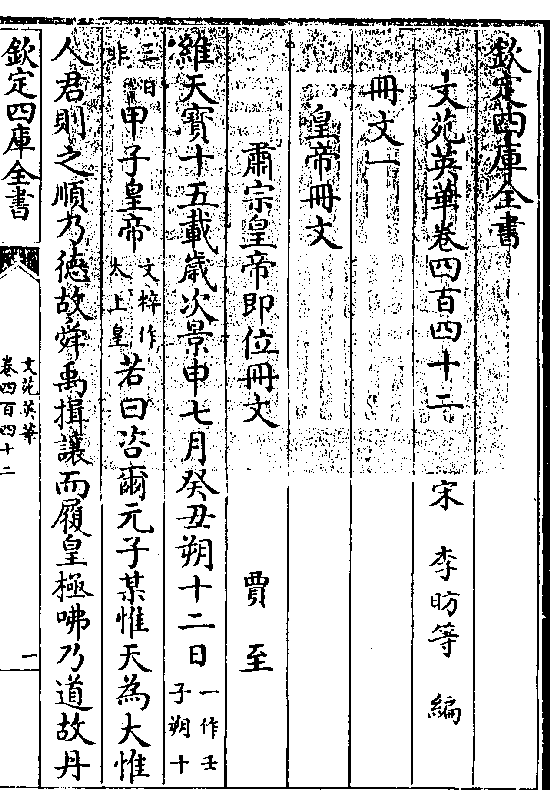 欽定四庫全書
文苑英華卷四百四十二　宋　李昉等　編
冊文一
皇帝冊文
肅宗皇帝即位冊文　賈至
維天寳十五載歳次景申七月癸丑朔十二日一作壬子朔十
三日非甲子皇帝文粹作太上皇若曰咨爾元子某惟天為大惟
人君則之順乃徳故舜禹揖讓而履皇極咈乃道故丹
欽定四庫全書
文苑英華
卷四百四十二
一